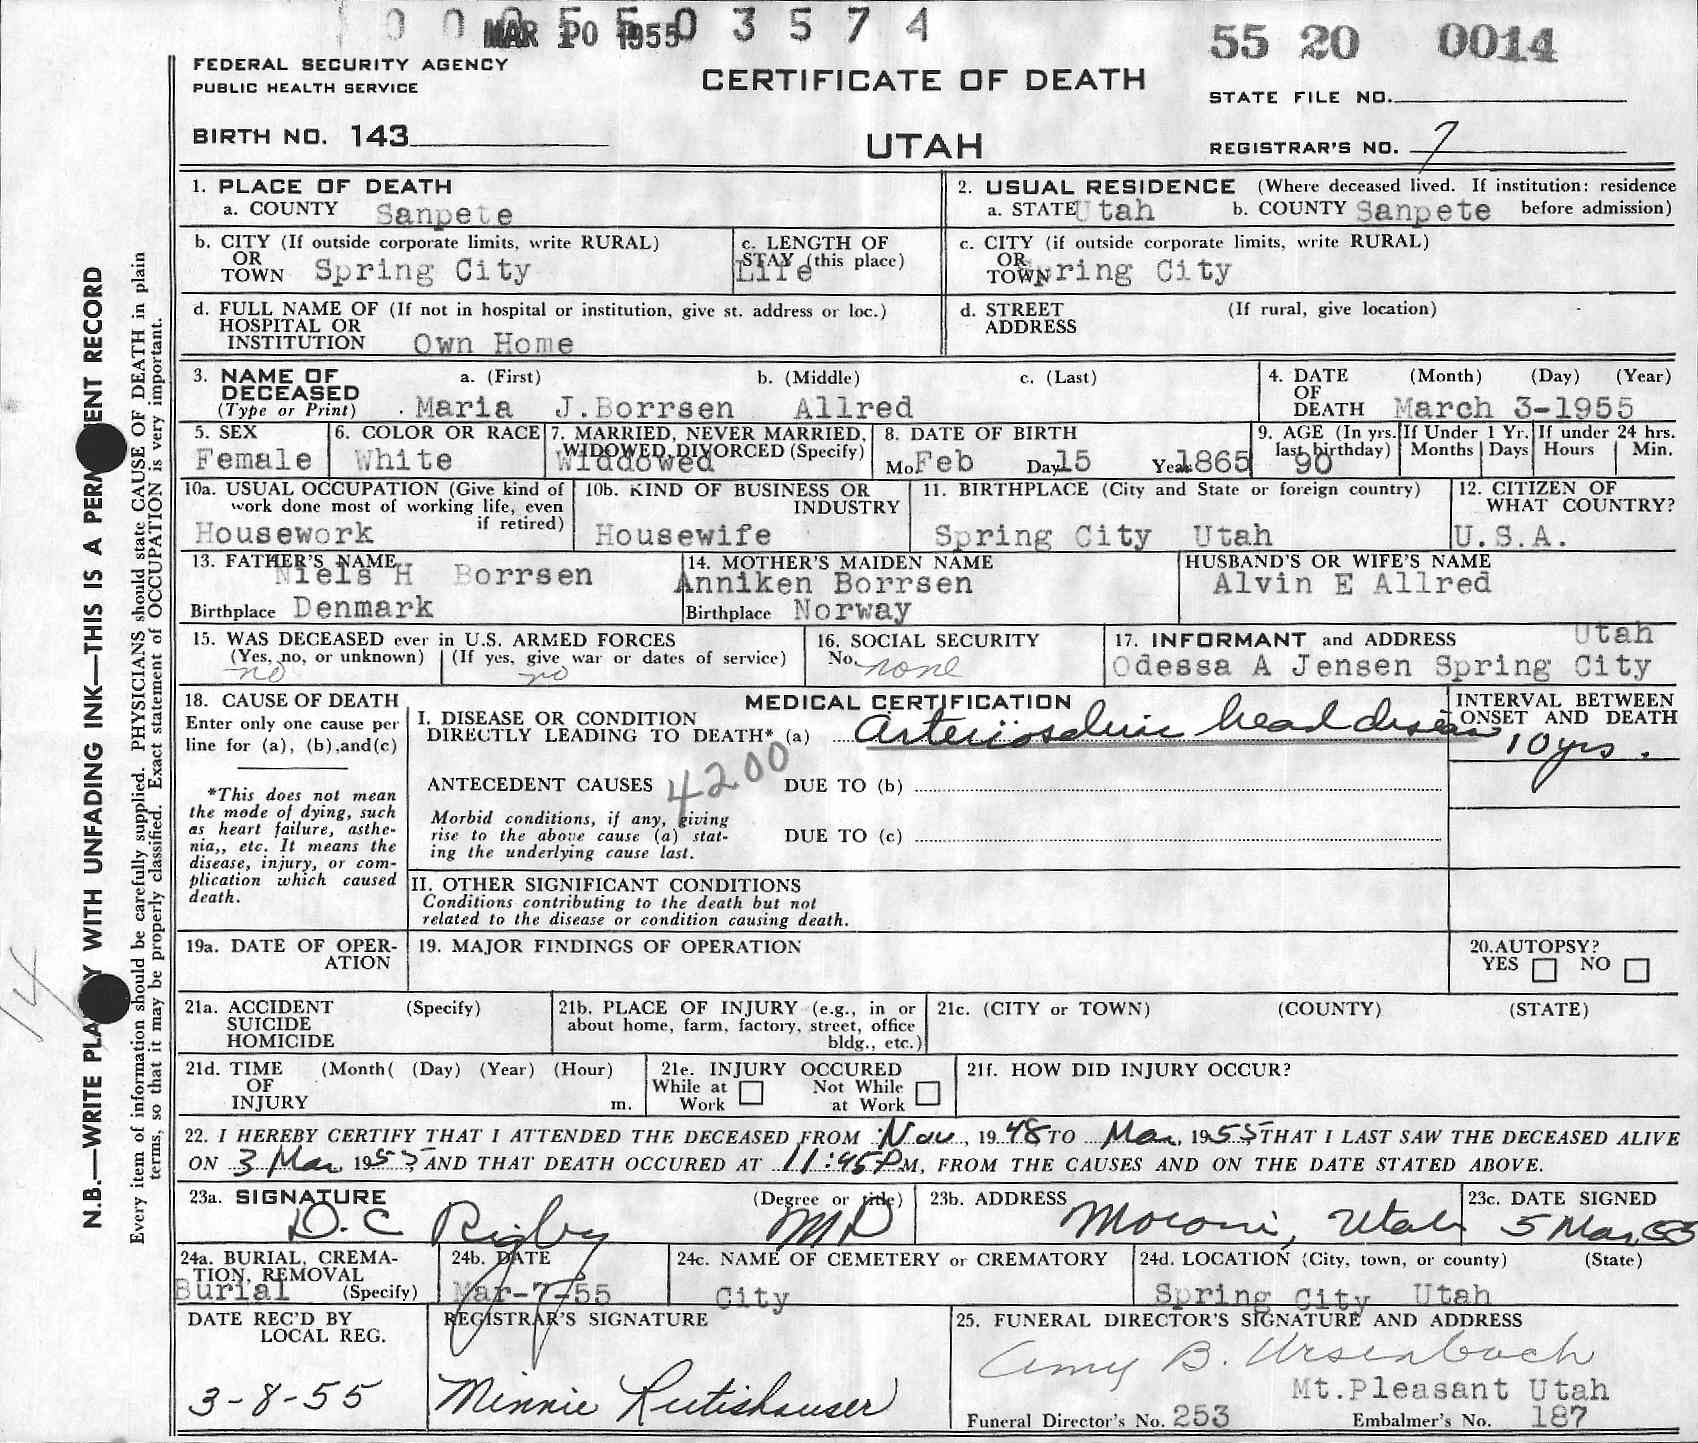 0 0 0 5 5 0 3 5 7 4
MAR 10 1955
55 20 0014
FEDERAL SECURITY AGENCY
PUBLIC HEALTH SERVICE
CERTIFICATE OF DEATH
STATE FILE NO.
BIRTH NO. 143
UTAH
REGISTRAR'S NO. 7
1. PLACE OF DEATH
a. COUNTY Sanpete
2. USUAL RESIDENCE (Where deceased lived. If institution: residence
a. STATE Utah b. COUNTY Sanpete before admission)
b. CITY (If outside corporate limits, write RURAL)
OR
TOWN Spring City
c. LENGTH OF
STAY (this place)
Life
c. CITY (if outside corporate limits, write RURAL)
OR
TOWN Spring City
d. FULL NAME OF (If not in hospital or institution, give st. address or loc.)
HOSPITAL OR
INSTITUTION Own Home
d. STREET (If rural, give location)
ADDRESS
3. NAME OF a. (First) b. (Middle) c. (Last)
DECEASED
(Type or Print) Maria J.Borrsen Allred
4. DATE (Month) (Day) (Year)
OF
DEATH March 3-1955
5. SEX
Female
6. COLOR OR RACE
White
7. MARRIED, NEVER MARRIED,
WIDOWED, DIVORCED (Specify)
Widdowed
8. DATE OF BIRTH
Mo. Feb Day 15 Year 1865
9. AGE (In yrs.
last birthday)
90
If Under 1 Yr.
Months Days
If under 24 hrs.
Hours Min.
10a. USUAL OCCUPATION (Give kind of
work done most of working life, even
if retired)
Housework
10b. KIND OF BUSINESS OR
INDUSTRY
Housewife
11. BIRTHPLACE (City and State or foreign country)
Spring City Utah
12. CITIZEN OF
WHAT COUNTRY?
U.S.A.
13. FATHER'S NAME
Niels H Borrsen
Birthplace Denmark
14. MOTHER'S MAIDEN NAME
Anniken Borrsen
Birthplace Norway
HUSBAND'S OR WIFE'S NAME
Alvin E Allred
15. WAS DECEASED ever in U.S. ARMED FORCES
(Yes, no, or unknown) (If yes, give war or dates of service)
no no
16. SOCIAL SECURITY
No. none
17. INFORMANT and ADDRESS Utah
Odessa A Jensen Spring City
18. CAUSE OF DEATH
Enter only one cause per
line for (a), (b),and(c)
*This does not mean
the mode of dying, such
as heart failure, asthe-
nia,, etc. It means the
disease, injury, or com-
plication which caused
death.
MEDICAL CERTIFICATION
I. DISEASE OR CONDITION
DIRECTLY LEADING TO DEATH* (a) Arterioscleric head disease
INTERVAL BETWEEN
ONSET AND DEATH
10 yrs.
ANTECEDENT CAUSES 4200 DUE TO (b)
Morbid conditions, if any, giving
rise to the above cause (a) stat-
ing the underlying cause last.
DUE TO (c)
II. OTHER SIGNIFICANT CONDITIONS
Conditions contributing to the death but not
related to the disease or condition causing death.
19a. DATE OF OPER-
ATION
19. MAJOR FINDINGS OF OPERATION
20.AUTOPSY?
YES NO
21a. ACCIDENT (Specify)
SUICIDE
HOMICIDE
21b. PLACE OF INJURY (e.g., in or
about home, farm, factory, street, office
bldg., etc.)
21c. (CITY or TOWN) (COUNTY) (STATE)
21d. TIME (Month( (Day) (Year) (Hour)
OF
INJURY m.
21e. INJURY OCCURED
While at Not While
Work at Work
21f. HOW DID INJURY OCCUR?
22. I HEREBY CERTIFY THAT I ATTENDED THE DECEASED FROM Nov, 1948 TO Mar, 1955 THAT I LAST SAW THE DECEASED ALIVE
ON 3 Mar 1955 AND THAT DEATH OCCURED AT 11:45PM, FROM THE CAUSES AND ON THE DATE STATED ABOVE.
23a. SIGNATURE (Degree or title)
D.C Rigby MD
23b. ADDRESS
Moroni, Utah
23c. DATE SIGNED
5 Mar 55
24a. BURIAL, CREMA-
TION, REMOVAL
Burial (Specify)
24b. DATE
Mar-7-55
24c. NAME OF CEMETERY or CREMATORY
City
24d. LOCATION (City, town, or county) (State)
Spring City Utah
DATE REC'D BY
LOCAL REG.
3-8-55
REGISTRAR'S SIGNATURE
Minnie Rutishauser
25. FUNERAL DIRECTOR'S SIGNATURE AND ADDRESS
Amy B. Ursenbach
Mt.Pleasant Utah
Funeral Director's No. 253 Embalmer's No. 187
N.B.—WRITE PLAINLY WITH UNFADING INK—THIS IS A PERMANENT RECORD
Every item of information should be carefully supplied. PHYSICIANS should state CAUSE OF DEATH in plain
terms, so that it may be properly classified. Exact statement of OCCUPATION is very important.
14